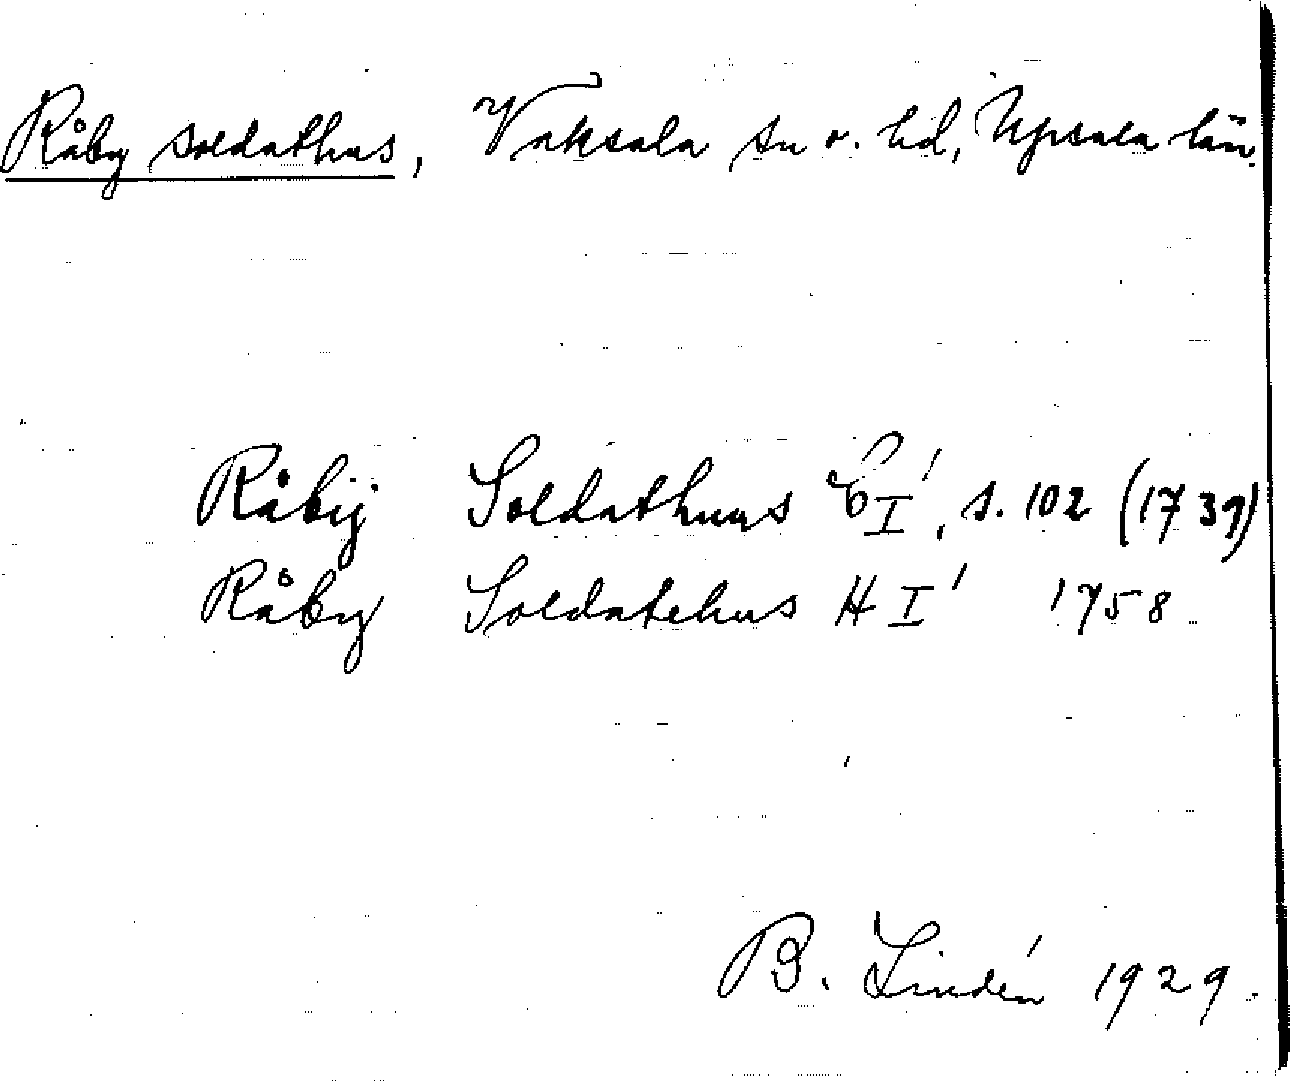 Råby soldathus, Vaksala sn o. hd, Upsala län.
Råbÿ Soldathuus CI', s. 102 (1739)
Råby Soldatehus HI' 1758
B. Lindén 1929.